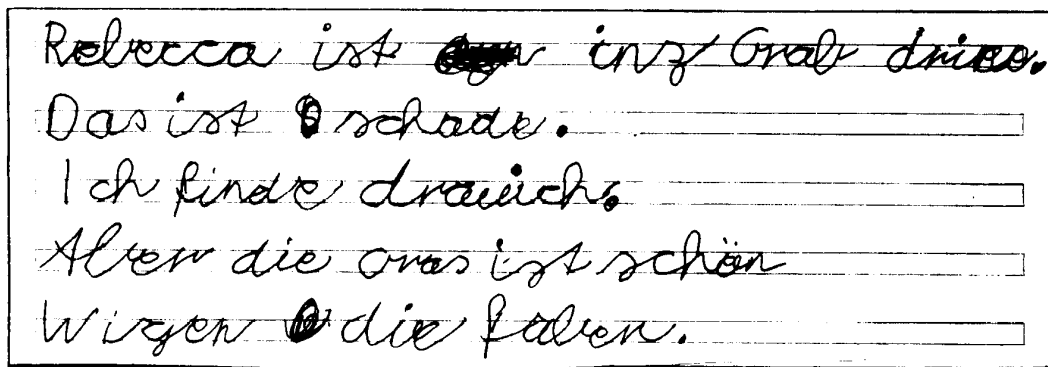 Rebecca ist inz Grab drine.
Das ist schade.
Ich finde drauich.
Aber die oras ist schön
Wigen die faben.